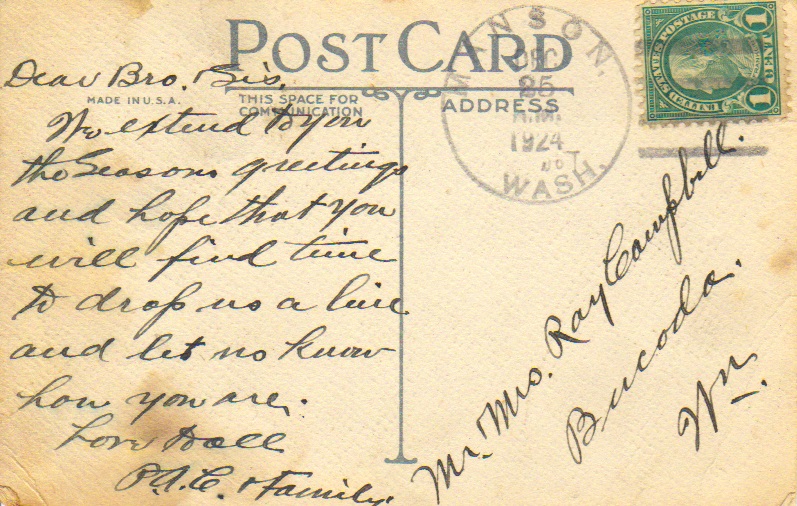 POST CARD
MADE IN U.S.A.
THIS SPACE FOR
COMMUNICATION
ADDRESS
Dear Bro. Sis.
We extend to you
the Seasons greetings
and hope that you
will find time
to drop us a line
and let us know
how you are.
Love to all
P.A.C. & Family.
MANSON,
DEC
25
A.M.
1924
WASH.
UNITED STATES POSTAGE
1 CENT 1
Mr. Mrs. Ray Campbell.
Bucoda.
Wn.